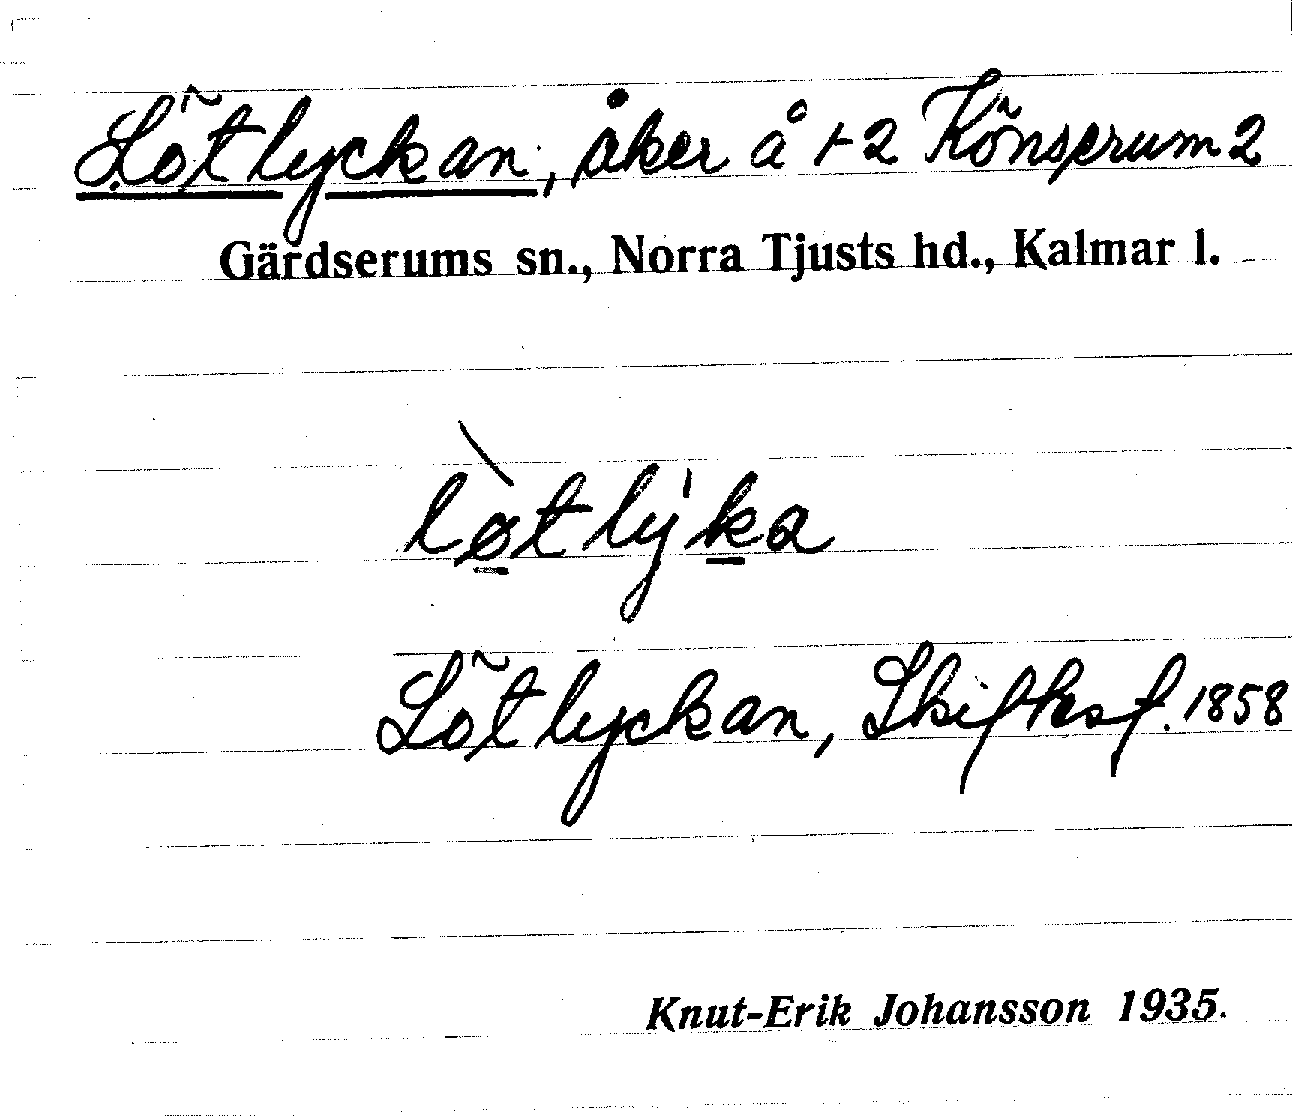 Lötlyckan, åker å t 2 Könserum 2
Gärdserums sn., Norra Tjusts hd., Kalmar l.
lø̀tlyka
Lötlyckan, Skifksf. 1858
Knut-Erik Johansson 1935.